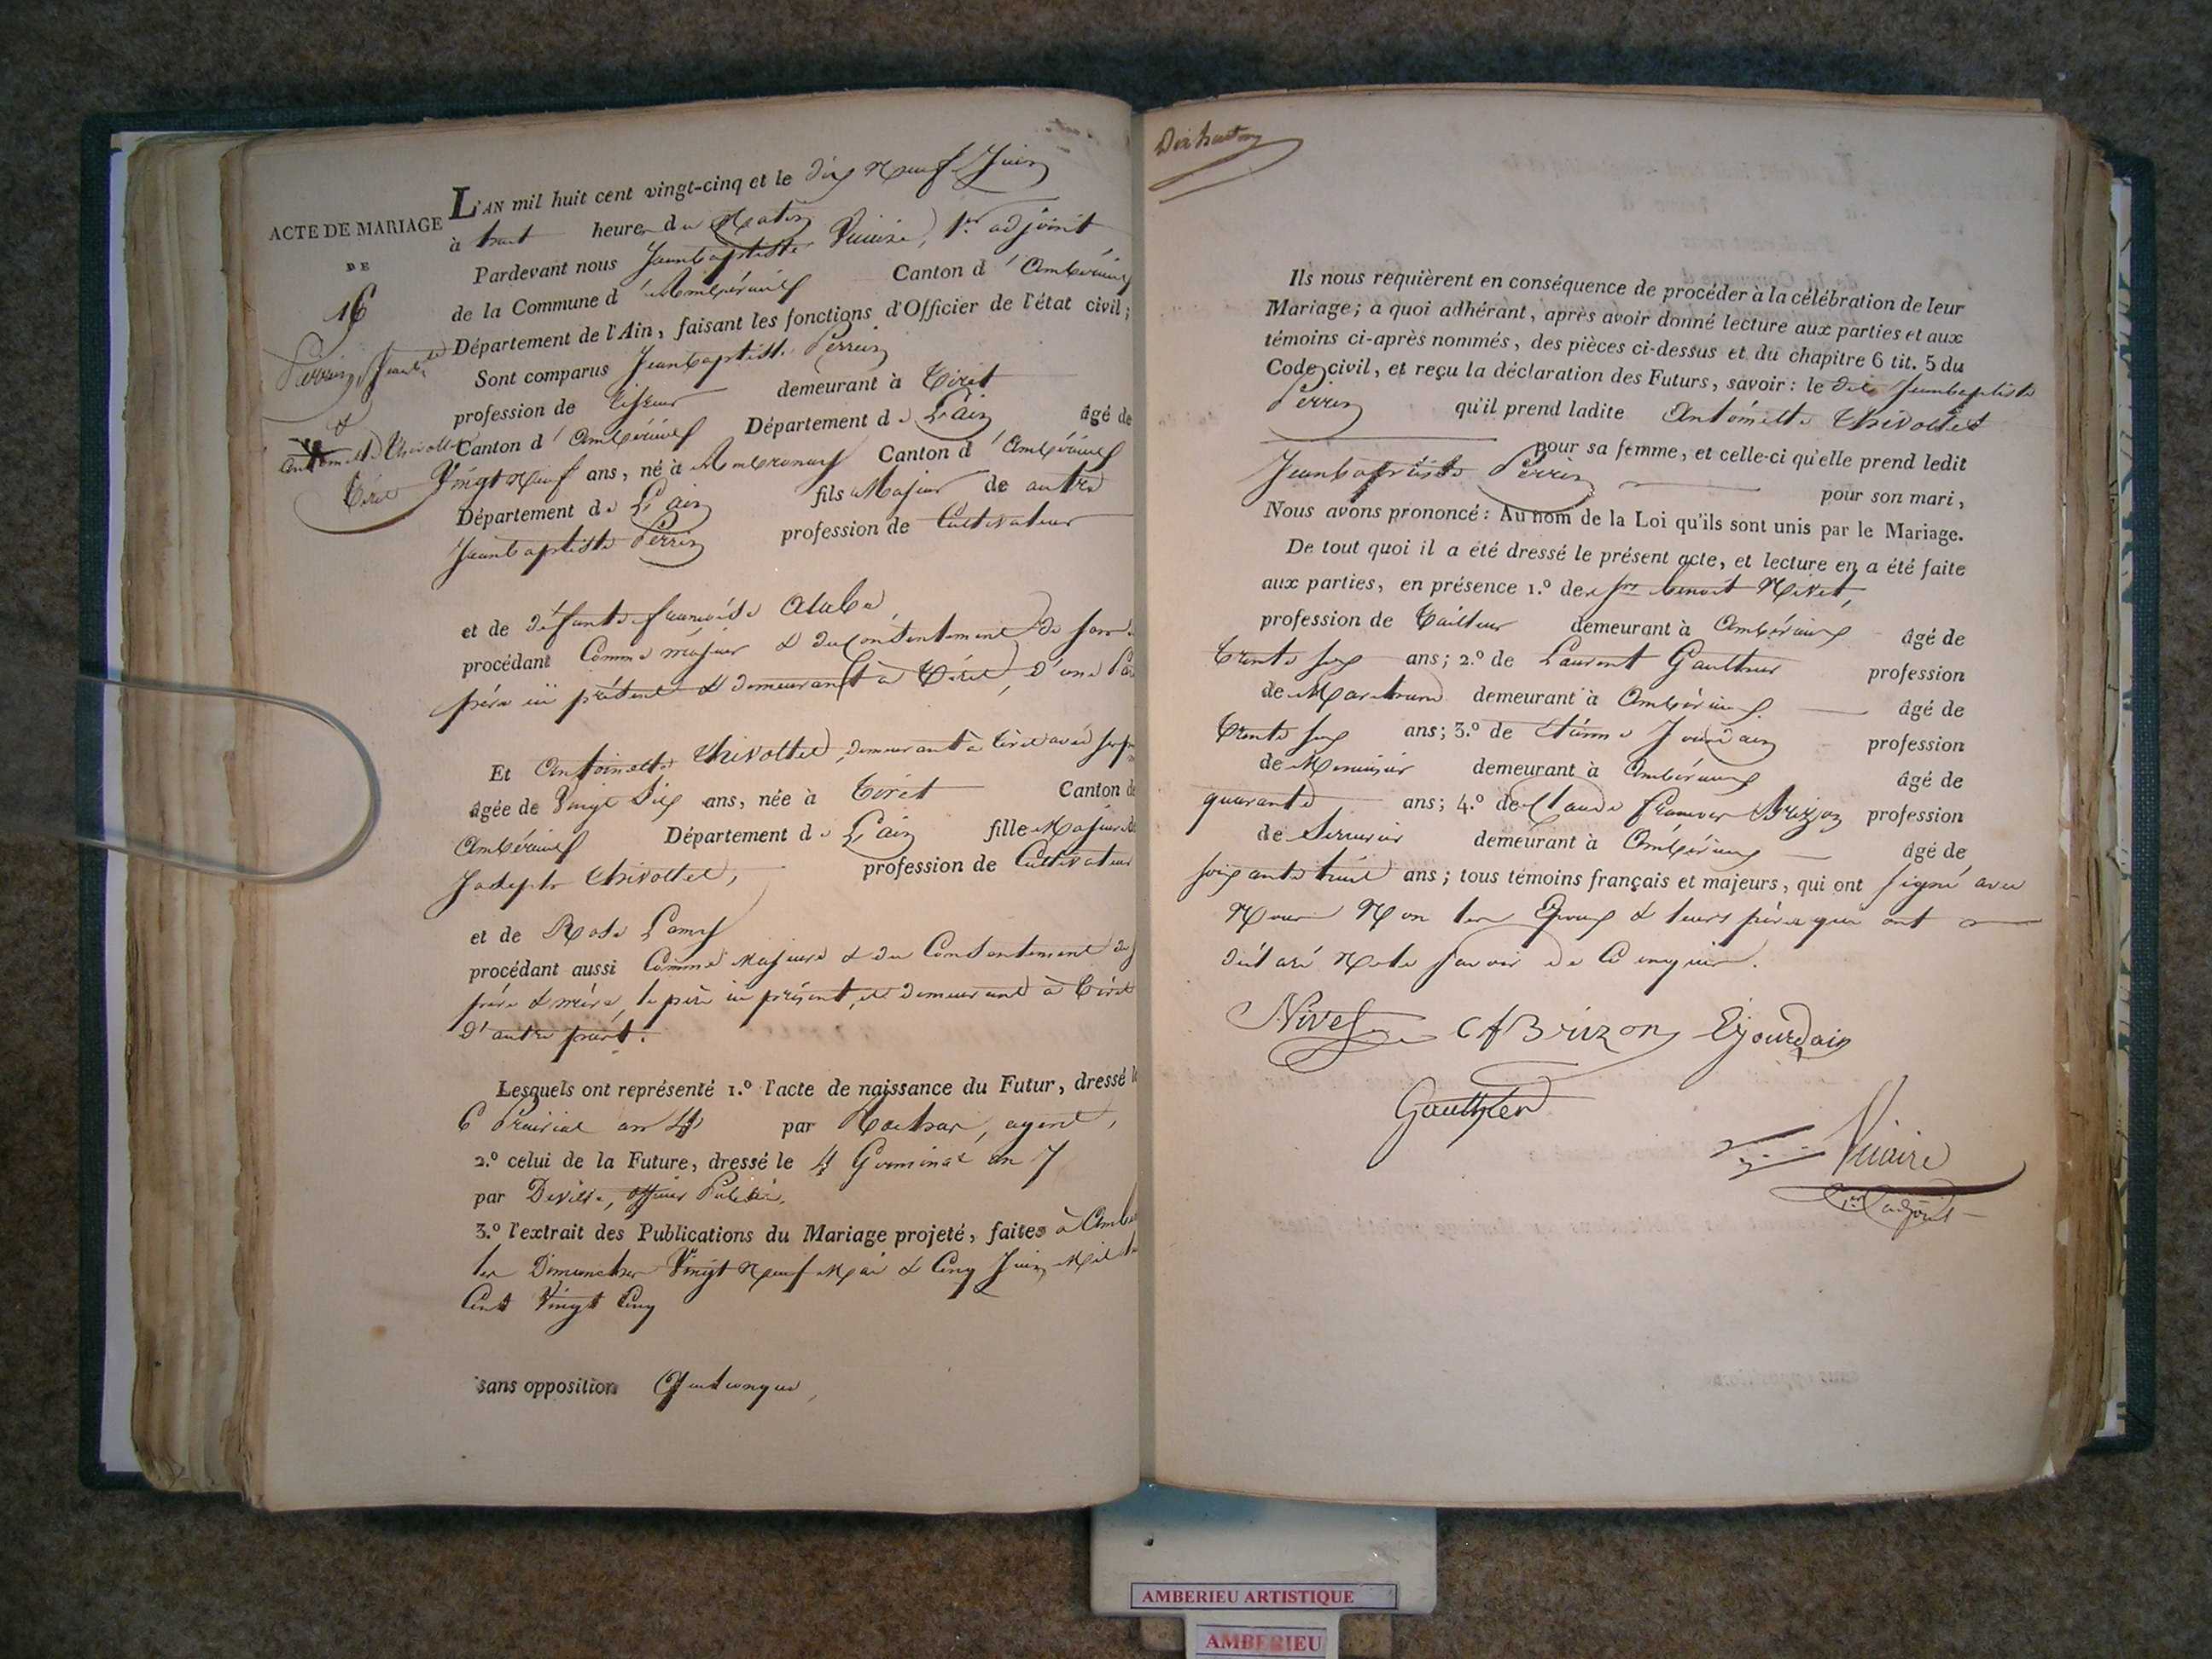 ACTE DE MARIAGE
DE
16
Perrin, Jean
&
Antoinette Chivollet
Tiret
L'AN mil huit cent vingt-cinq et le dix Neuf Juin
à huit heure du Matin
Pardevant nous Jeanbaptiste Vicaire, 1er adjoint
de la Commune d'Ambérieux Canton d'Ambérieux
Département de l'Ain, faisant les fonctions d'Officier de l'état civil;
Sont comparus Jeanbaptiste Perrin
profession de tisseur demeurant à Tiret
Canton d'Ambérieux Département de L'ain âgé de
Vingt Neuf ans, né à Ambronay Canton d'Ambérieux
Département de L'ain fils Majeur de autre
Jeanbaptiste Perrin profession de Cultivateur
et de défunte francoise
procédant Comme majeur & du Consentement de son
père ici présent & demeurant à Tiret, d'une Part
Et Antoinette Chivollet, demeurant à tiret avec ses
âgée de Vingt Six ans, née à Tiret Canton d
Ambérieux Département de L'ain fille Majeure de
Joseph Chivollet, profession de Cultivateur
et de Rose Lamy
procédant aussi Comme Majeure & du Consentement de
père & mère, le père ici présent, et demeurant à Tiret
d'autre part.
Lesquels ont représenté 1.º l'acte de naissance du Futur, dressé le
6 Prairial an 4 par agent,
2.º celui de la Future, dressé le 4 Germinal an 7
par Deville, officier Public,
3.º l'extrait des Publications du Mariage projeté, faites à Amb
les Dimanches Vingt Neuf Mai & Cinq Juin Mil
Cent Vingt Cinq
sans opposition Quelconque,
Dix huit
Ils nous requièrent en conséquence de procéder à la célébration de leur
Mariage; à quoi adhérant, après avoir donné lecture aux parties et aux
témoins ci-après nommés, des pièces ci-dessus et du chapitre 6 tit. 5 du
Code civil, et reçu la déclaration des Futurs, savoir: le dit Jeanbaptiste
Perrin qu'il prend ladite Antoinette Chivollet
pour sa femme, et celle-ci qu'elle prend ledit
Jeanbaptiste Perrin pour son mari,
Nous avons prononcé: Au nom de la Loi qu'ils sont unis par le Mariage.
De tout quoi il a été dressé le présent acte, et lecture en a été faite
aux parties, en présence 1.º des Srs benoit Nivet,
profession de Tailleur demeurant à Ambérieux âgé de
trente six ans; 2.º de Laurent Gauthier profession
de Marchand demeurant à Ambérieux âgé de
trente six ans; 3.º de Etienne Jourdain profession
de Menuisier demeurant à Ambérieux âgé de
quarante ans; 4.º de Claude francois Brizon profession
de Serrurier demeurant à Ambérieux âgé de
soixante huit ans; tous témoins français et majeurs, qui ont signé avec
Nous Non les Epoux & leurs pères qui ont
déclaré Ne le savoir de Ce enquis.
Nivet CfBrizon Ejourdain
Gauthier
Vicaire
1er adjoint
AMBERIEU ARTISTIQUE
AMBERIEU